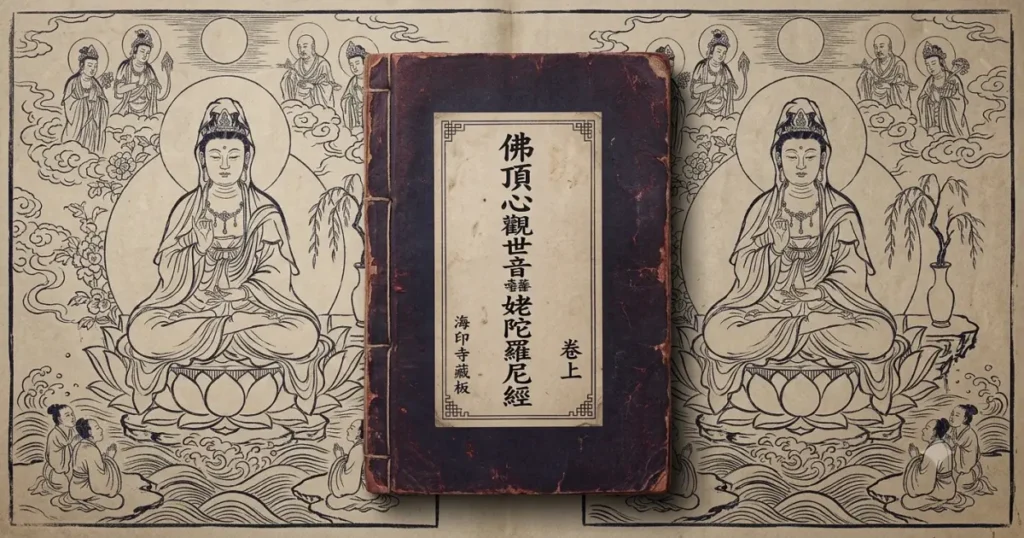 佛頂心觀世音姥陀羅尼經
卷上
海印寺藏板